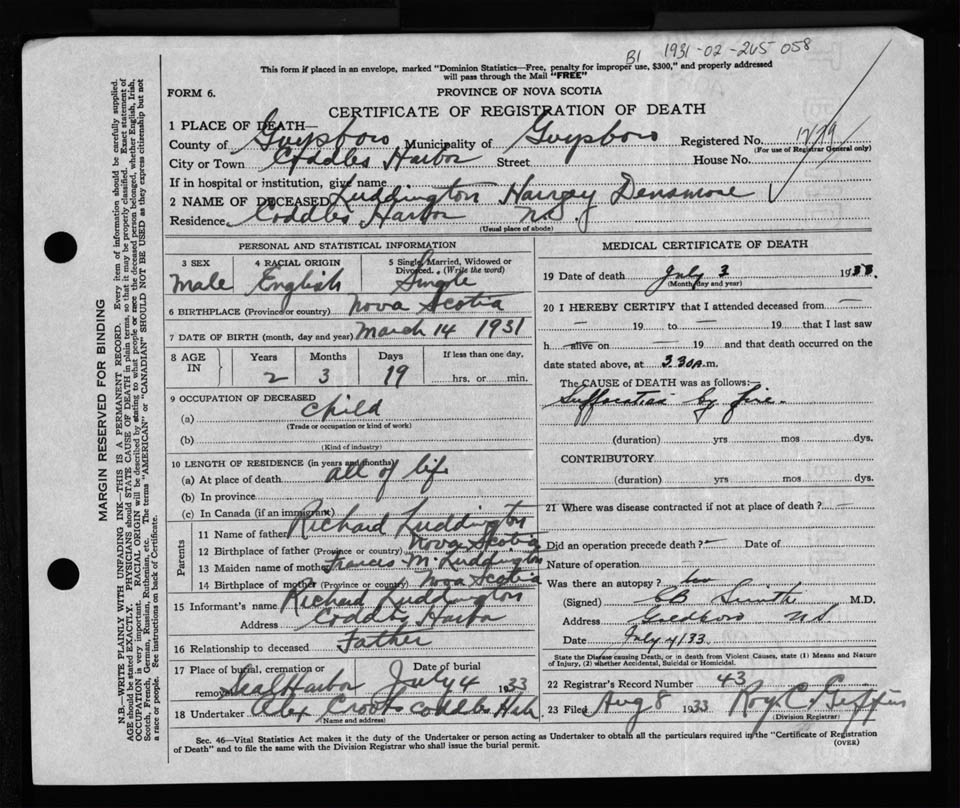 B1 1931-02-265 058
This form if placed in an envelope, marked "Dominion Statistics—Free, penalty for improper use, $300," and properly addressed
will pass through the Mail "FREE"
FORM 6.
PROVINCE OF NOVA SCOTIA
CERTIFICATE OF REGISTRATION OF DEATH
1 PLACE OF DEATH—
County of Guysboro Municipality of Guysboro Registered No. 1779
(For use of Registrar General only)
City or Town Coddles Harbor Street House No.
If in hospital or institution, give name
2 NAME OF DECEASED Luddington Harvey Densmore
Residence Coddles Harbor NS.
(Usual place of abode)
PERSONAL AND STATISTICAL INFORMATION
3 SEX 4 RACIAL ORIGIN 5 Single, Married, Widowed or Divorced. (Write the word)
Male English Single
6 BIRTHPLACE (Province or country) Nova Scotia
7 DATE OF BIRTH (month, day and year) March 14 1931
8 AGE IN Years Months Days If less than one day,
2 3 19 hrs. or min.
9 OCCUPATION OF DECEASED
(a) Child
(Trade or occupation or kind of work)
(b)
(Kind of industry)
10 LENGTH OF RESIDENCE (in years and months)
(a) At place of death all of life
(b) In province
(c) In Canada (if an immigrant)
Parents
11 Name of father Richard Luddington
12 Birthplace of father (Province or country) Nova Scotia
13 Maiden name of mother Frances M. Luddington
14 Birthplace of mother (Province or country) Nova Scotia
15 Informant's name Richard Luddington
Address Coddles Harbor
16 Relationship to deceased Father
17 Place of burial, cremation or Date of burial
removal Seal Harbor July 4 1933
18 Undertaker Alex Crooks Coddles Har
(Name and address)
MEDICAL CERTIFICATE OF DEATH
19 Date of death July 3 1933.
(Month, day and year)
20 I HEREBY CERTIFY that I attended deceased from —
— 19 to — 19 that I last saw
h alive on — 19 and that death occurred on the
date stated above, at 3.30 P.m.
The CAUSE OF DEATH was as follows:—
Suffocation by fire.
(duration) yrs mos dys.
CONTRIBUTORY
(duration) yrs mos dys.
21 Where was disease contracted if not at place of death? —
Did an operation precede death? — Date of
Nature of operation —
Was there an autopsy? no
(Signed) Smith M.D.
Address Goldboro NS.
Date July 4/33
State the Disease causing Death, or in death from Violent Causes, state (1) Means and Nature
of Injury, (2) whether Accidental, Suicidal or Homicidal.
22 Registrar's Record Number 43
23 Filed Aug 8 1933 Roy C. Giffin
(Division Registrar)
Sec. 46—Vital Statistics Act makes it the duty of the Undertaker or person acting as Undertaker to obtain all the particulars required in the "Certificate of Registration
of Death" and to file the same with the Division Registrar who shall issue the burial permit.
(OVER)
MARGIN RESERVED FOR BINDING
N.B.—WRITE PLAINLY WITH UNFADING INK—THIS IS A PERMANENT RECORD. Every item of information should be carefully supplied.
AGE should be stated EXACTLY. PHYSICIANS should STATE CAUSE OF DEATH in plain terms, so that it may be properly classified. Exact statement of
OCCUPATION is very important. RACIAL ORIGIN will be described by stating to what people or race the deceased person belonged, whether English, Irish,
Scotch, French, German, Russian, Ruthenian, etc. The terms "AMERICAN" or "CANADIAN" SHOULD NOT BE USED as they express citizenship but not
a race or people. See instructions on back of Certificate.